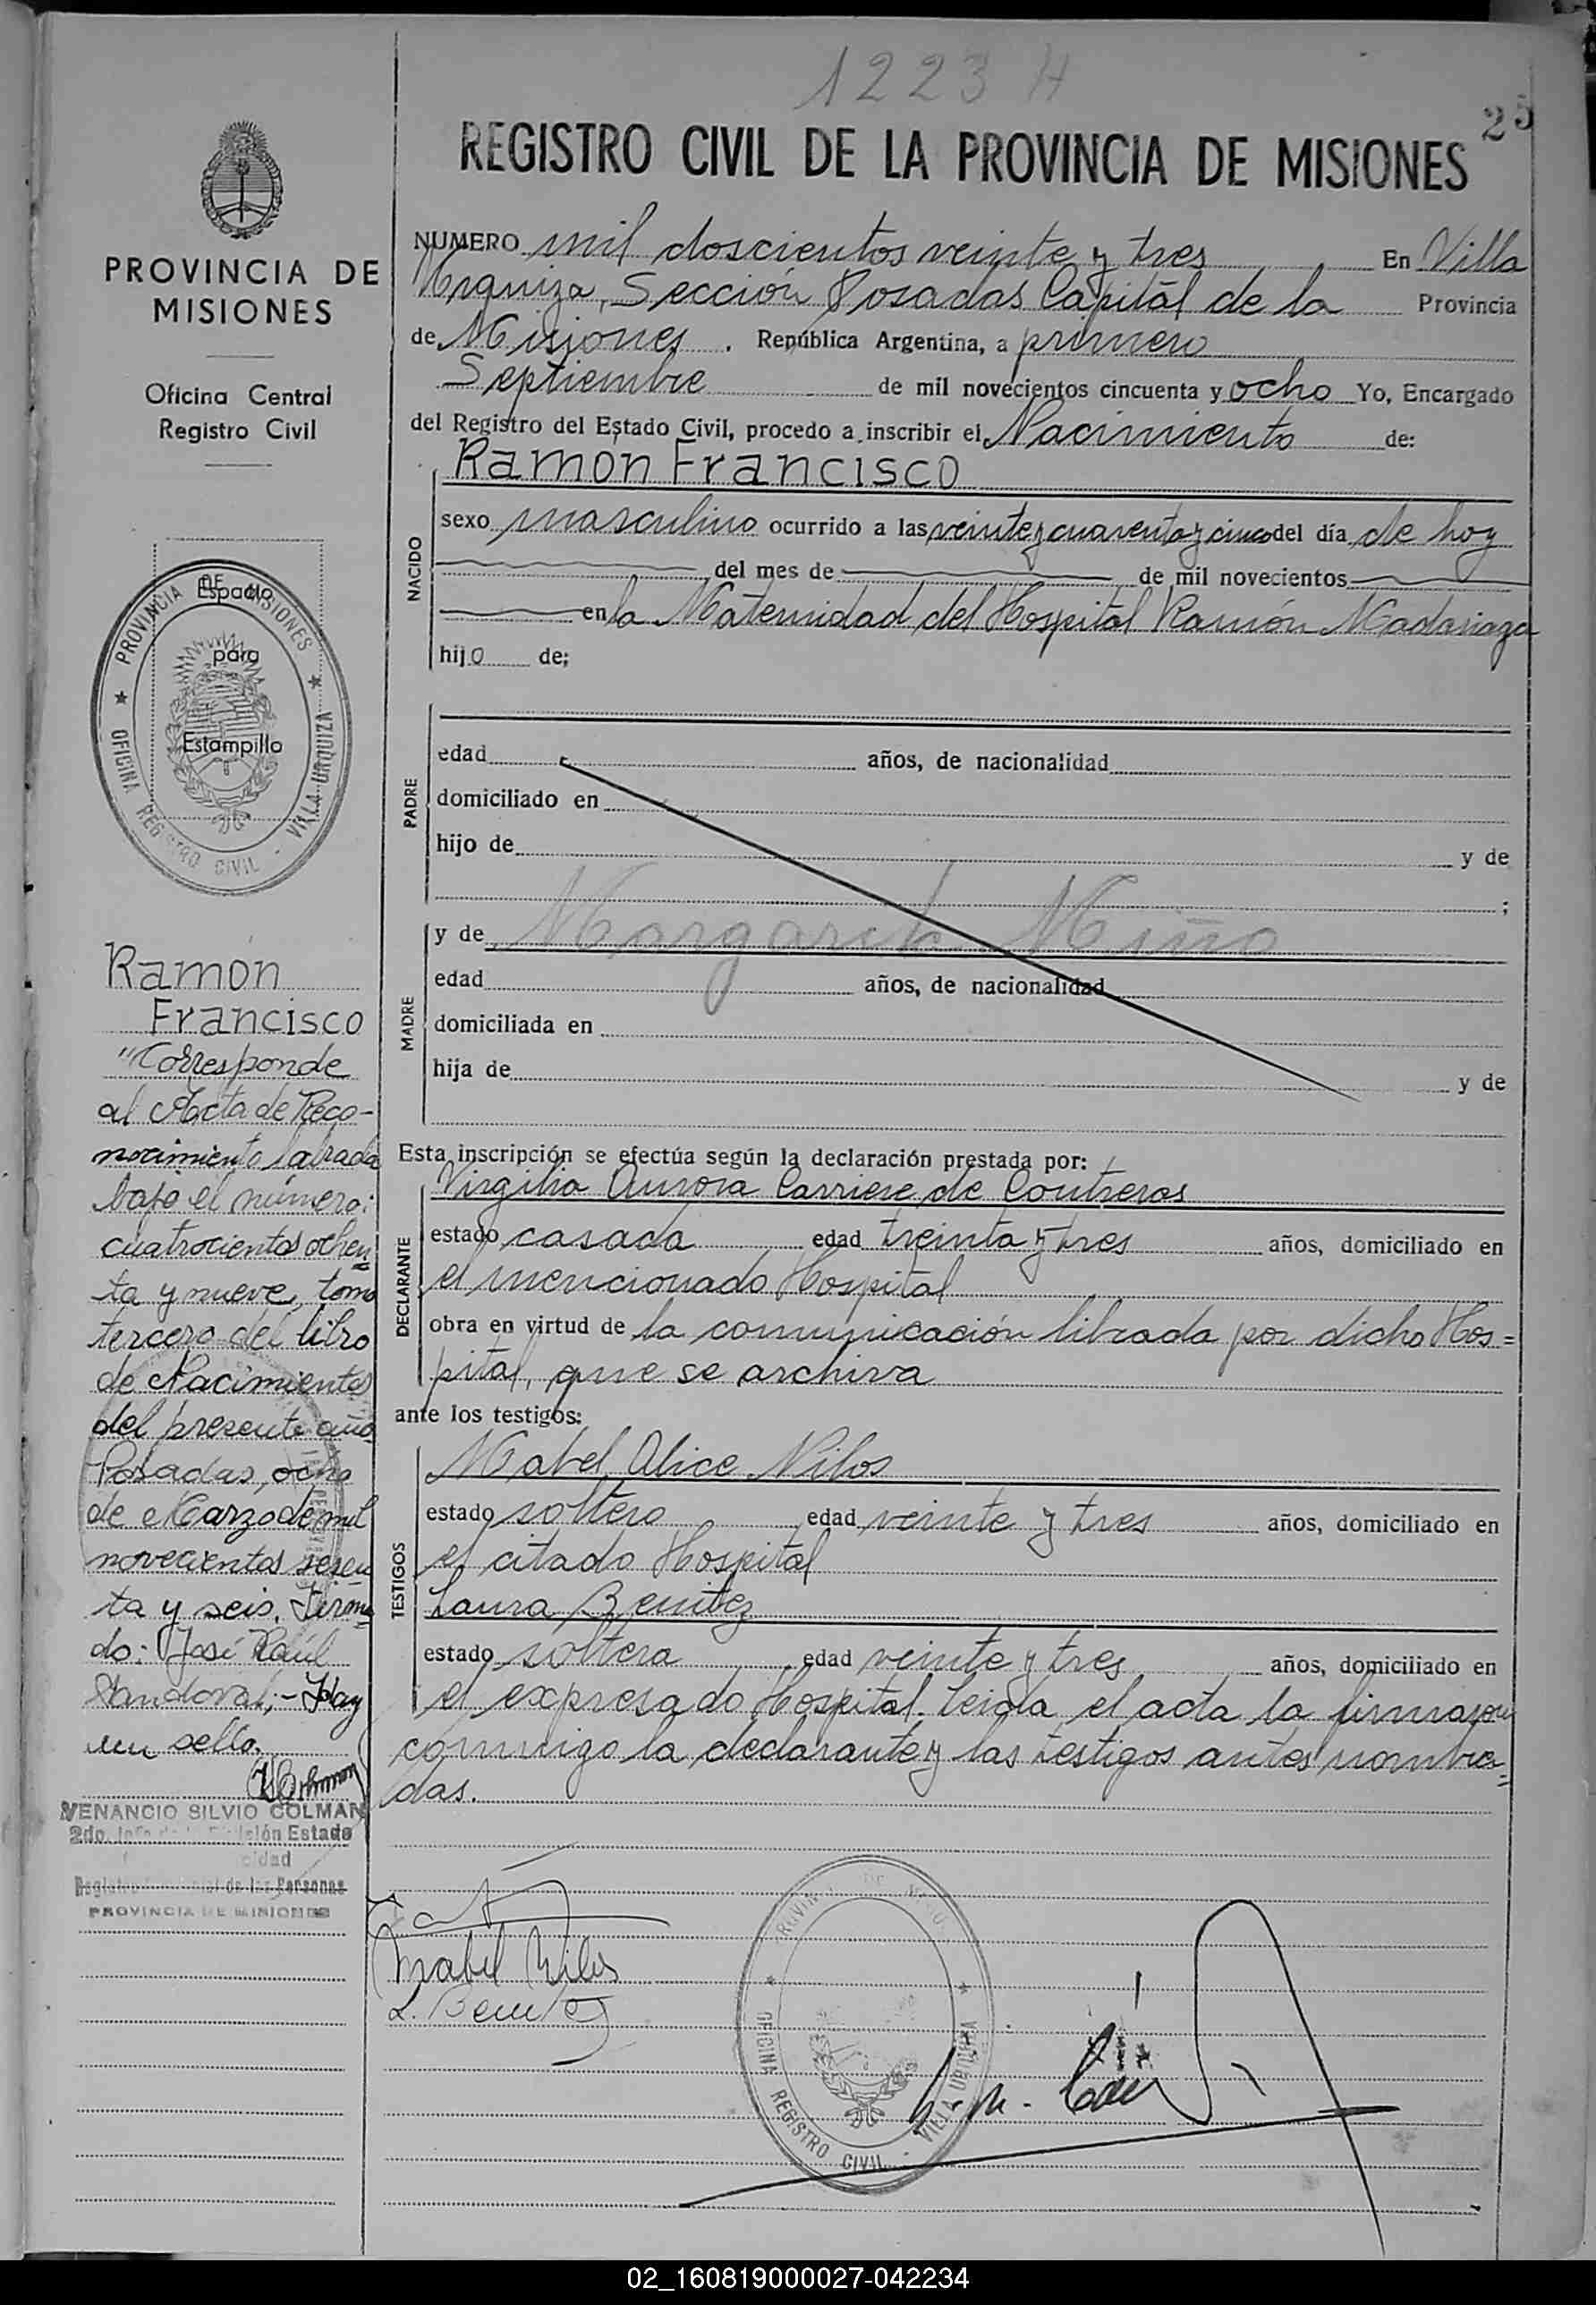 1223 H
25
REGISTRO CIVIL DE LA PROVINCIA DE MISIONES
PROVINCIA DE
MISIONES
Oficina Central
Registro Civil
PROVINCIA DE MISIONES
OFICINA REGISTRO CIVIL - VILLA URQUIZA
Espacio
para
Estampillo
Ramon
Francisco
"Corresponde
al Acta de Reco-
nocimiento labrada
bajo el número:
cuatrocientos ochen
ta y nueve, tomo
tercero del libro
de Nacimientos
del presente año
Posadas, ocho
de Marzo de mil
novecientos sesen
ta y seis. Firma=
do: José Raúl
Sandoval;- Hay
un sello.
VENANCIO SILVIO COLMAN
2do. Jefe de la División Estado
cidad
Registro Provincial de las Personas
PROVINCIA DE MISIONES
NUMERO mil doscientos veinte y tres En Villa
Urquiza, Sección Posadas Capital de la Provincia
de Misiones. República Argentina, a primero
Septiembre de mil novecientos cincuenta y ocho Yo, Encargado
del Registro del Estado Civil, procedo a inscribir el Nacimiento de:
Ramon Francisco
NACIDO
sexo masculino ocurrido a las veinte y cuarenta y cinco del día de hoy
del mes de de mil novecientos
en la Maternidad del Hospital Ramón Madariaga
hijo de;
PADRE
edad años, de nacionalidad
domiciliado en
hijo de y de
;
MADRE
y de Margarita Miño
edad años, de nacionalidad
domiciliada en
hija de y de
Esta inscripción se efectúa según la declaración prestada por:
DECLARANTE
Virgilia Aurora Carriere de Contreras
estado casada edad treinta y tres años, domiciliado en
el mencionado Hospital
obra en virtud de la comunicación librada por dicho Hos=
pital, que se archiva
ante los testigos:
TESTIGOS
Mabel Alice Nilos
estado soltera edad veinte y tres años, domiciliado en
el citado Hospital
Laura Benitez
estado soltera edad veinte y tres años, domiciliado en
el expresado Hospital. Leida el acta la firmaron
conmigo la declarante y las testigos antes nombra=
das.
Mabel Nilos
L. Benitez
PROVINCIA DE MISIONES
OFICINA REGISTRO CIVIL - VILLA URQUIZA
02_160819000027-042234